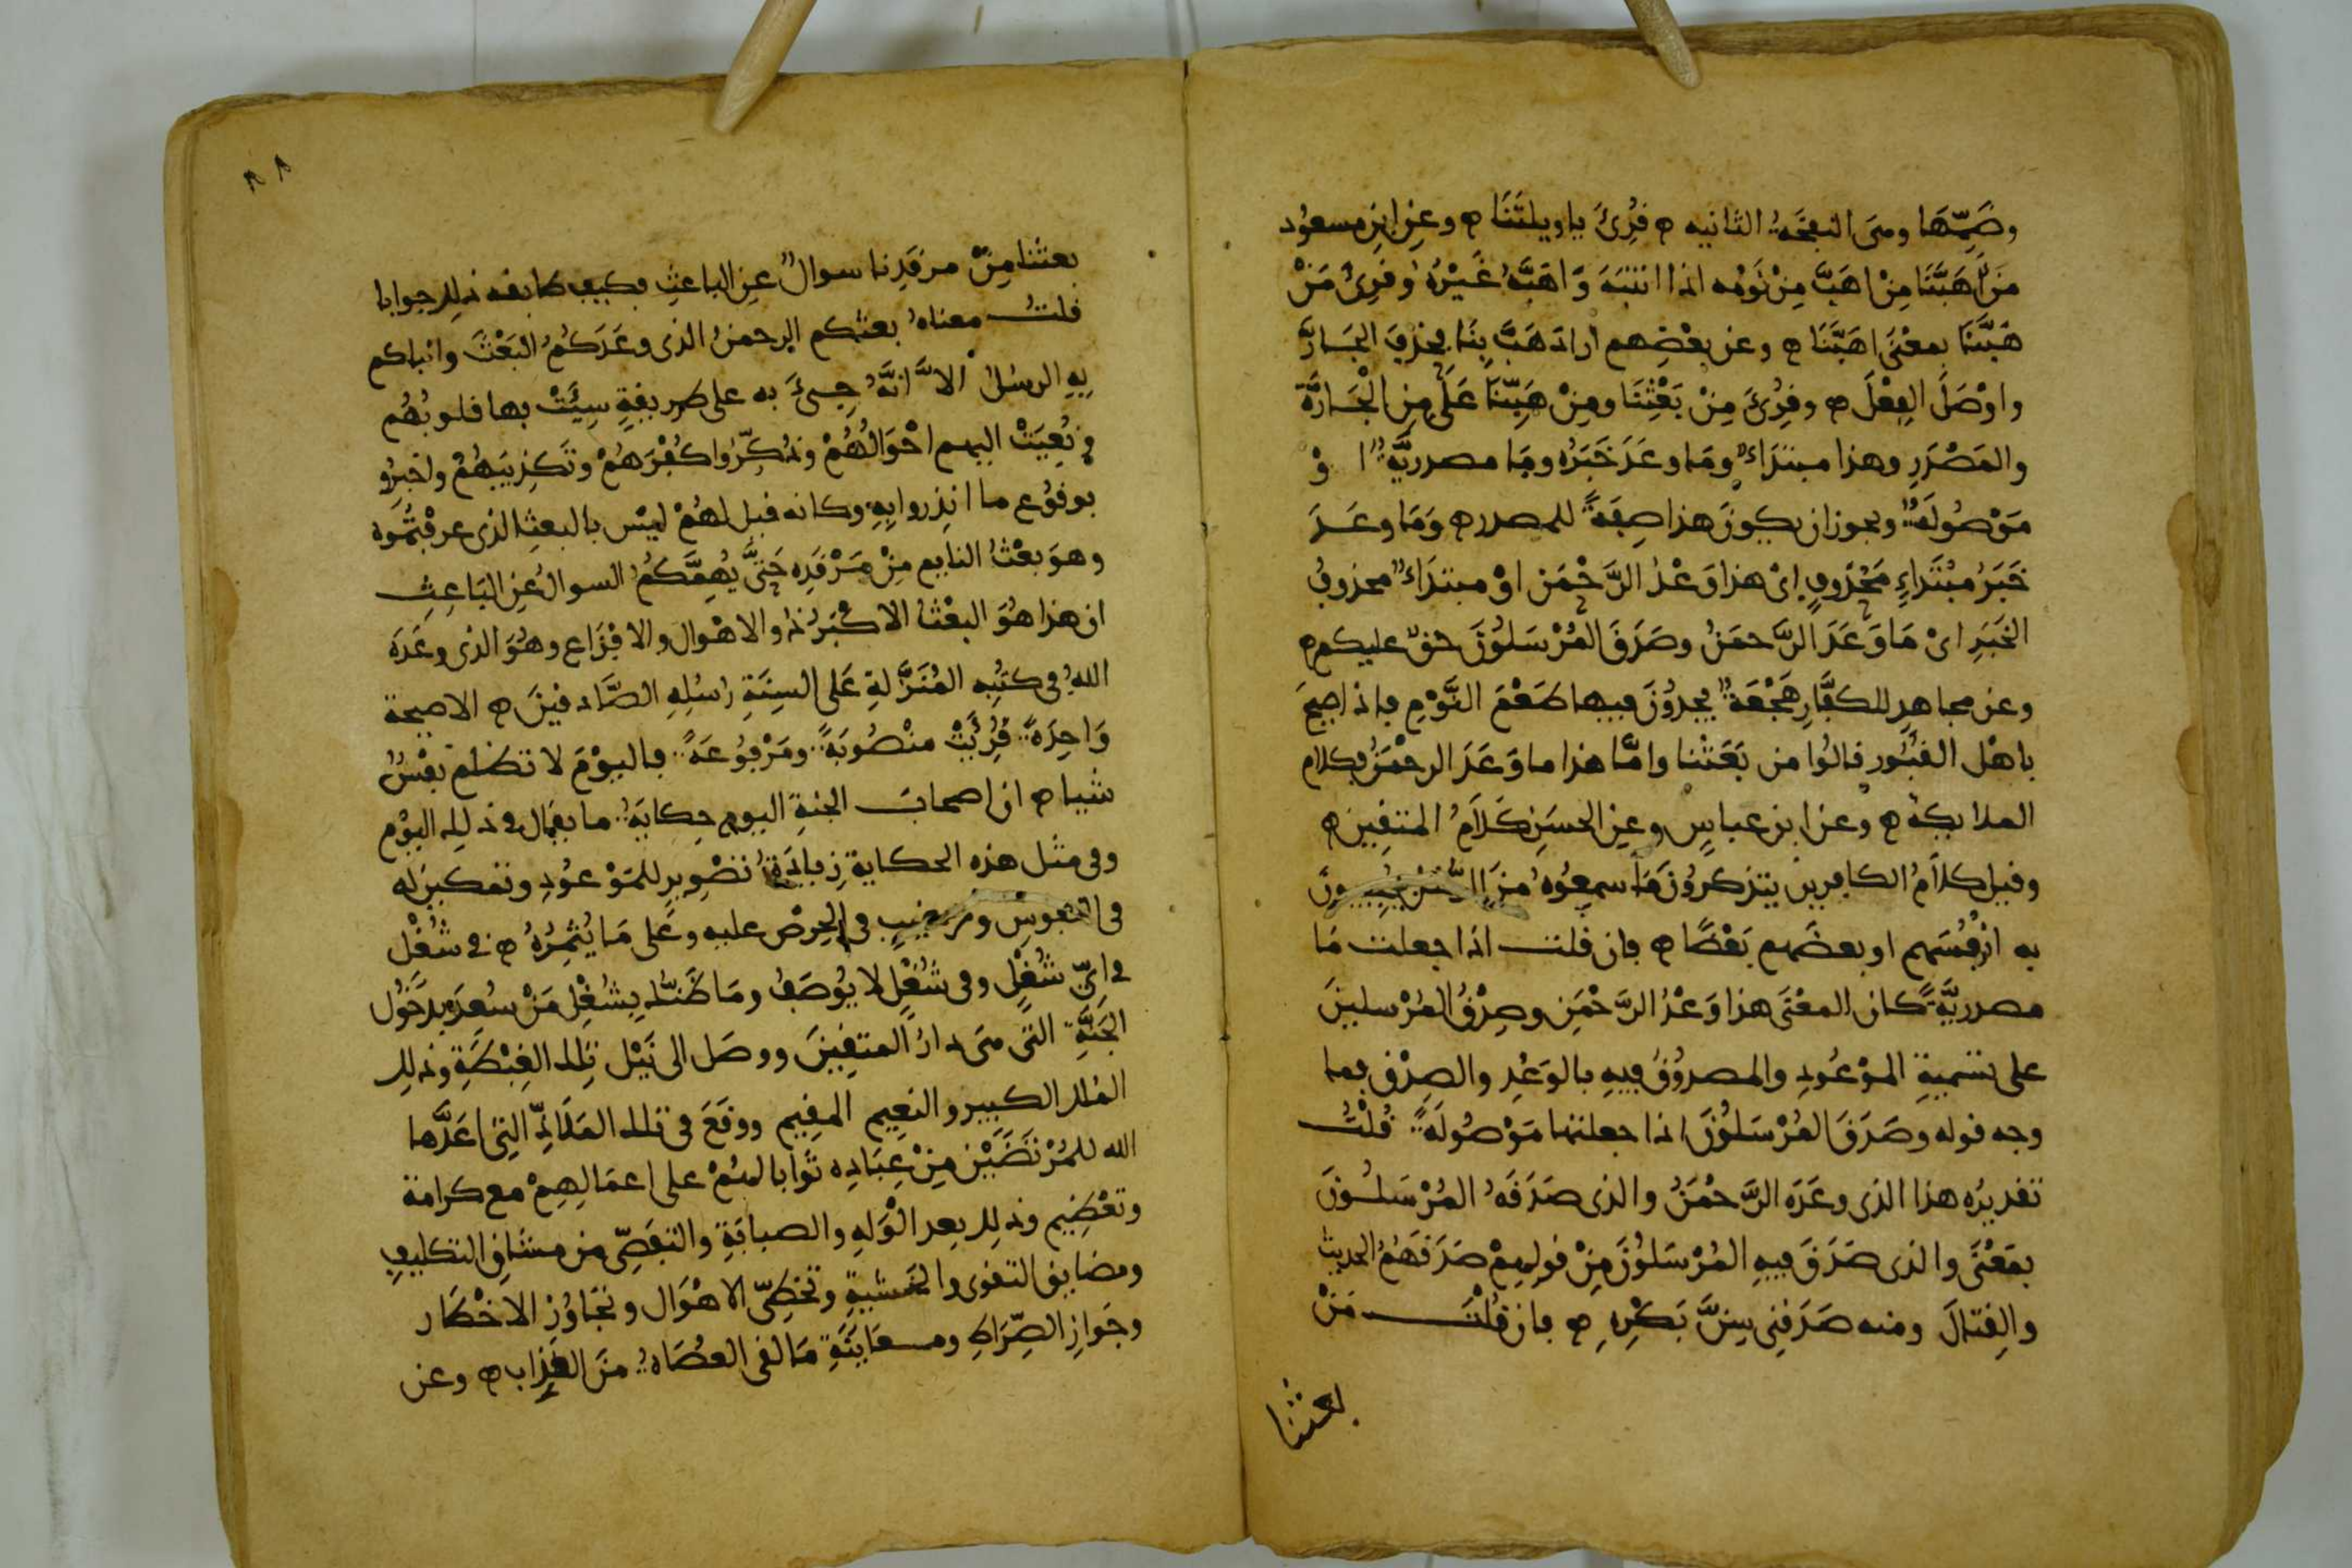 وضمّها وهى النفخة الثانيه ه قُرِئَ ياويلتَنَا ه وعن ابن مسعُود
مَن اَهَبَّنَا مِنْ اهَبَّ مِنْ نَوْمه اذا انتبَهَ وَاهَبَّهُ غَيْرُهُ وقرِئ مَنْ
هَبَّنَا بمعْنَى اهَبَّنَا ه وعن بعْضِهم ارادَ هَبَّ بِنَا فحذفَ الجَارَّ
واوْصَلَ الفِعْلَ ه وقُرِئَ مِنْ بَعْثِنَا ومِنْ هَبِّنَا عَلَى مِن الْجَارَّة
والمَصْدَرِ وهذا مبتدَاءٌ ومَا وعَدَ خَبَرُه ومَا مصدريَّةٌ ا وْ
مَوْصُولَةٌ ويجوز ان يكونَ هذا صِفةً للمصدر ه وَمَا وعَدَ
خَبَرُ مُبْتَداءٍ مَحْذوفٍ اىْ هذا وَعْدُ الرَّحْمَن اوْ مبتدَاءٌ محذوفُ
الخَبَرِ اىْ مَا وَعَدَ الرَّحمَنُ وصَدَقَ المُرْسَلُونَ حقٌّ عليكم ه
وعن مجاهدٍ للكفَّارِ هَجْعَةٌ يجدُونَ فيها طَعْمَ النَّوْمِ فاذا صِيحَ
باهْل القبُور قالُوا من بَعَثَنا وامَّا هذا ما وَعَدَ الرحْمَنُ فكلام
الملايكة ه وعن ابن عباسٍ وعن الحسَن كَلَامُ المتقين ه
وقيل كلَامُ الكافرين يتذكرُونَ مَا سمعُوهُ منَ الرُّسْل فيُجيبُونَ
به انْفُسَهم او بعضَهم بَعْضًا ه فان قلت اذا جعلت مَا
مصدريَّةً كان المعْنَى هذا وَعْدُ الرَّحْمَنِ وصِدْقُ المُرْسلينَ
على تسْميةِ المَوْعُودِ والمصدُوقِ فيهِ بالوَعْدِ والصِدْق فما
وجه قوله وصَدَقَ المُرْسَلُونَ اذا جعلتها مَوْصُولَةً قُلْتُ
تقديرُه هذا الذى وعَدَه الرَّحْمَنُ والذى صَدَقَهُ المُرْسَلُونَ
بمَعْنَى والذى صَدَقَ فيهِ المُرْسَلُونَ مِنْ قولِهِمْ صَدَقَهُمُ الحديثَ
والقِتالَ ومنه صَدَقنِى سِنَّ بَكْرِهِ ه فان قُلْتَ مَنْ
بعثنا
٨٨
بعثنا مِنْ مرقدِنا سوالٌ عن الباعثِ فكيف طابقه ذلك جوابا
قلتُ معناهُ بعثكم الرحمنُ الذى وعَدَكُمُ البَعْثَ وانباكم
بِهِ الرسُلُ اِلَّا انَّهُ جِىءَ به على طريقةٍ سِيئَتْ بها قلوبُهُم
ونُعِيَتْ اليهم احْوَالُهُمْ وذُكِّرُوا كُفْرَهُمْ وتَكذيبَهُمْ واخبِرُو
بوقُوع ما انذِروا بِهِ وكانه قيل لهُمْ ليْس بالبعثِ الذى عرفْتُمُوه
وهوَ بعْثُ النايم مِنْ مَرْقَدِه حَتَّى يُهِمَّكُمُ السوالُ عن البَاعِثِ
ان هذا هُوَ البعْثُ الاكْبَرُ ذُو الاهْوال والافْزَاع وهُوَ الذى وعَدَهُ
اللهُ فى كتُبِه المُنَزَّلةِ عَلى السِنَةِ رُسُلِهِ الصَّادقينَ ه الا صيحة
وَاحِدَةً قُرِئَتْ منْصُوبَةً ومَرْفوُعَةً فاليوْمَ لا تظلم نفْسٌ
شيا ه ان اصحابَ الجنةِ اليوم حِكايَةُ ما يقال فى ذلك اليوْم
وفى مثل هذه الحكاية زِيادَةُ تصْوِير للمَوْعُودِ وتمكين له
فى النفوسِ وترغيبٍ فى الحِرْص عليه وعَلى مَا يُثمِرُهُ ه فى شُغْل
فى اىِّ شُغْلٍ وفى شُغْلٍ لا يُوصَفُ ومَا ظَنُّكَ بِشُغْلِ مَنْ سُعِدَ بدخُول
الجَنَّةِ التى هىَ دارُ المتقِينَ ووصَل الى نَيْل تلك الغِبْطَةِ وذلك
الملك الكبير والنعيم المقيم ووقَعَ فى تلك المَلَاذِّ التِى اعَدَّها
الله للمُرْتَضَيْنَ مِنْ عِبَادِه ثوابا لهُمْ على اعمَالِهِمْ مع كرامة
وتعْظِيم وذلك بعد الْوَلَهِ والصبابَةِ والتفَصِّى من مشاق التكليفِ
ومضايق التقوى والخَشيةِ وتَخَطِّى الاهْوَال وتجاوُز الاخْطَار
وجَوازِ الصِّرَاطِ ومعَايَنَةِ مَا لقى العصَاهُ منَ العَذَاب ه وعن